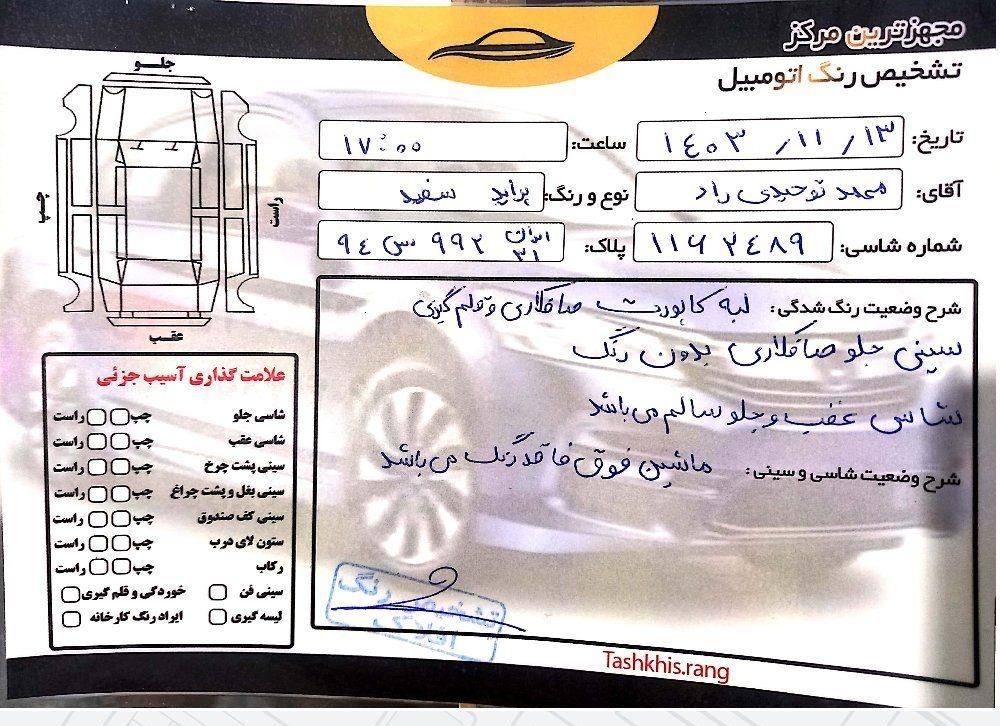 مجهزترین مرکز
تشخیص رنگ اتومبیل
تاریخ: ۱۴۰۳/۱۱/۱۳ ساعت: ۱۷:۰۰
آقای: محمد توحیدی راد نوع و رنگ: پراید سفید
شماره شاسی: ۱۱۶۲۴۸۹ پلاک: ایران ۳۱ ۹۹۲ س ۹۴
شرح وضعیت رنگ شدگی: لبه کاپوت صافکاری و قلم گیری
سینی جلو صافکاری بدون رنگ
شاسی عقب و جلو سالم می باشد
شرح وضعیت شاسی و سینی: ماشین فوق فاقد رنگ می باشد
جلو
چپ
راست
عقب
علامت گذاری آسیب جزئی
شاسی جلو چپ راست
شاسی عقب چپ راست
سینی پشت چرخ چپ راست
سینی بغل و پشت چراغ چپ راست
سینی کف صندوق چپ راست
ستون لای درب چپ راست
رکاب چپ راست
سینی فن خوردگی و قلم گیری
لیسه گیری ایراد رنگ کارخانه
تشخیص رنگ
افلاک
Tashkhis.rang